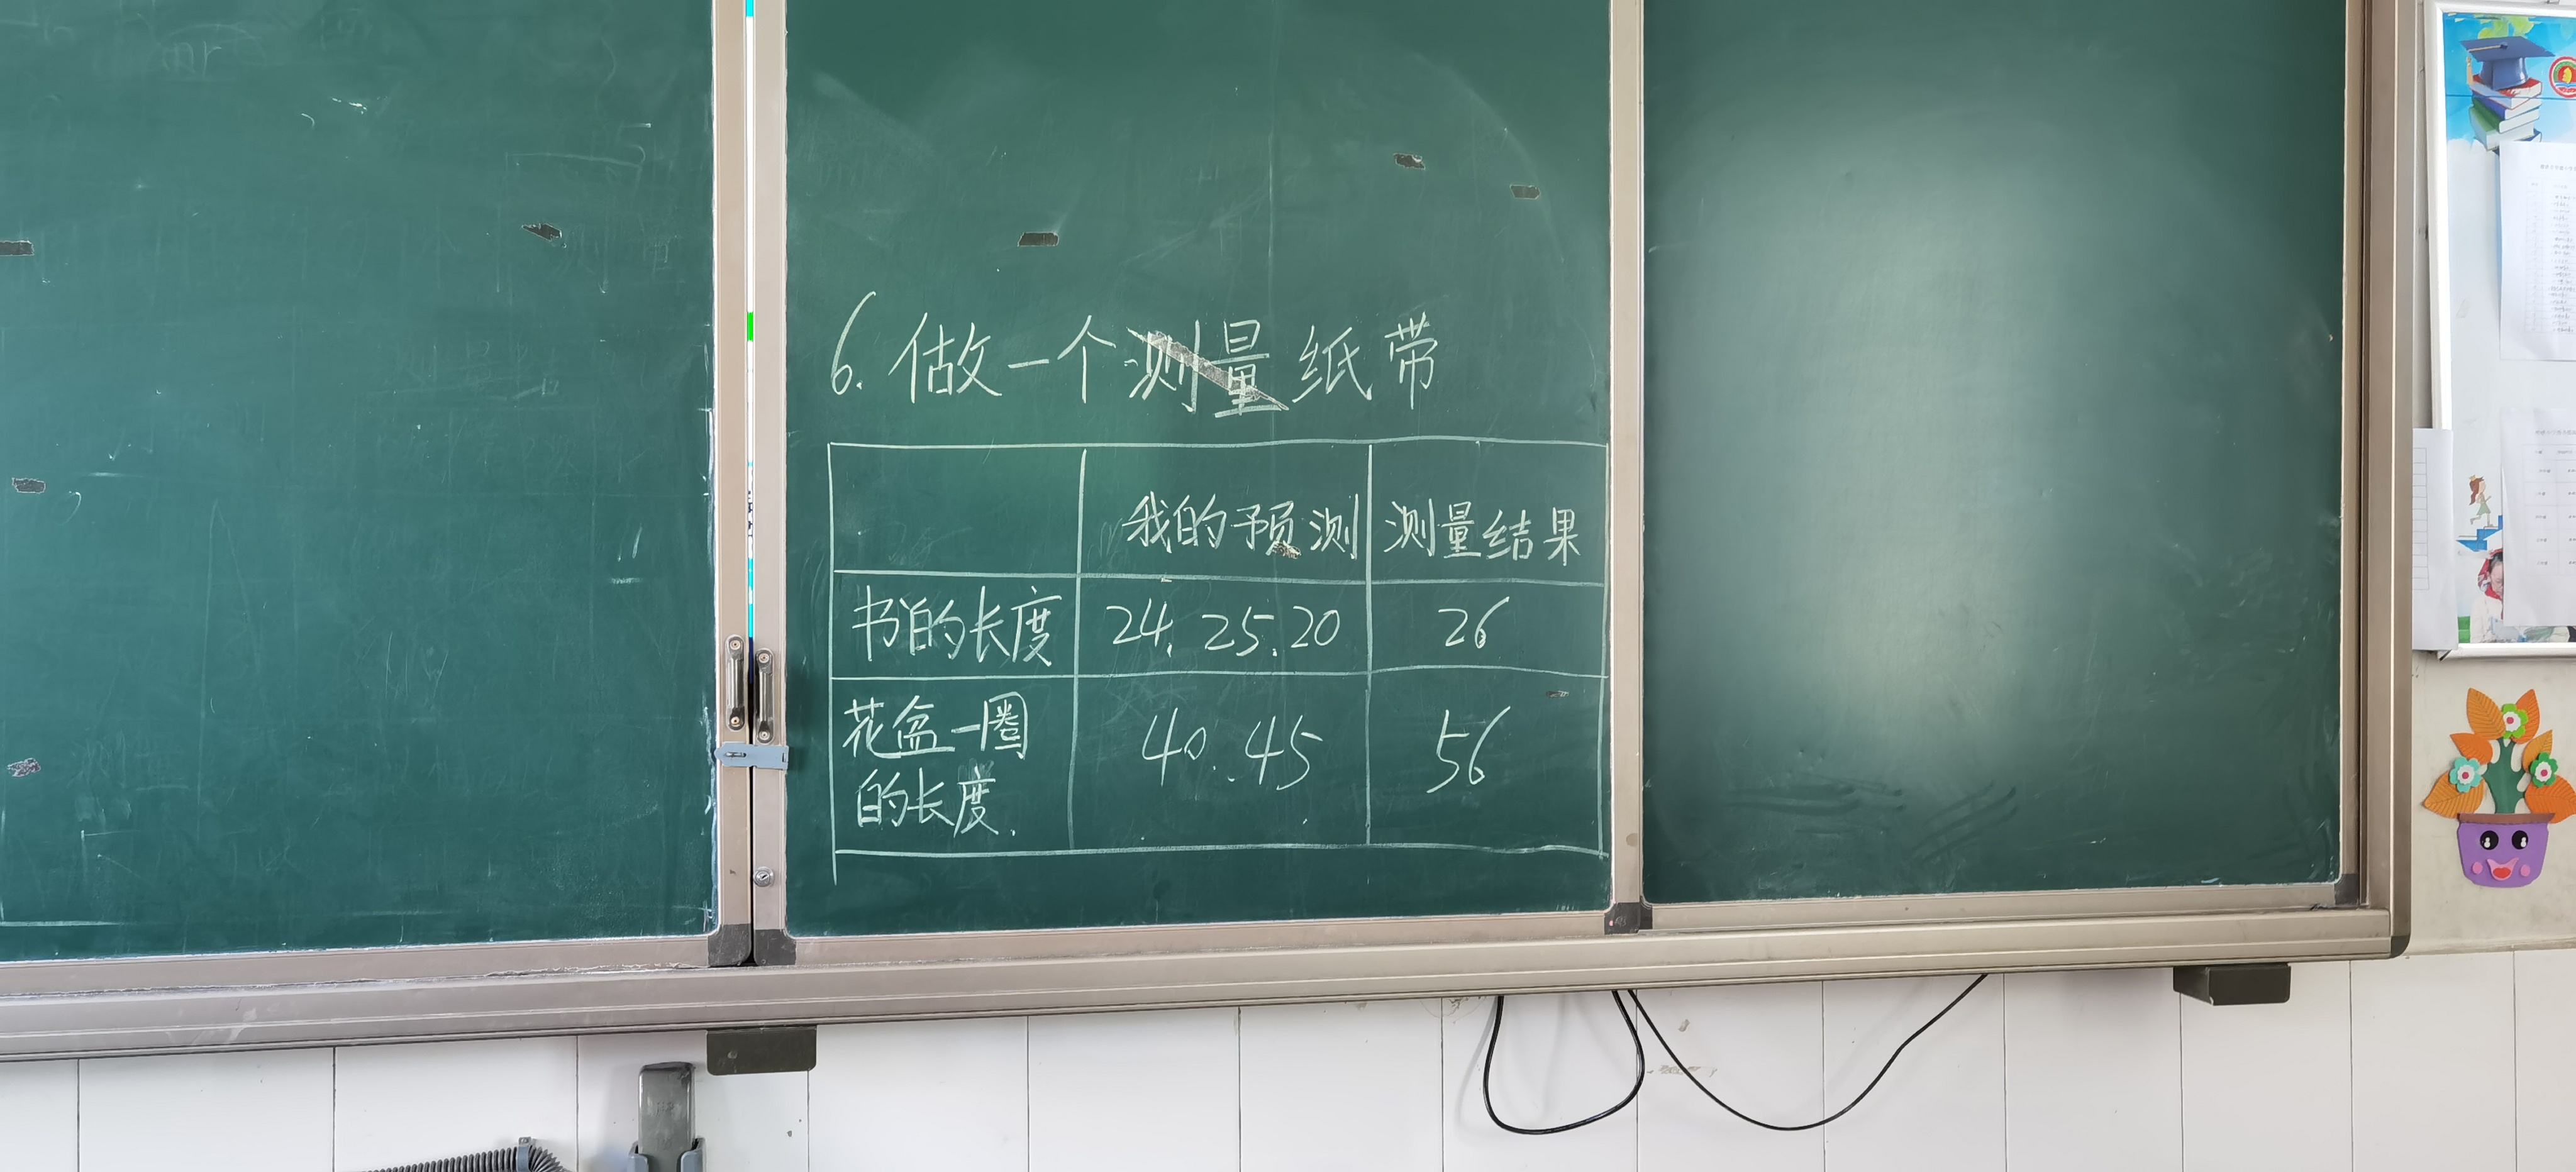 6. 做一个测量纸带
我的预测 测量结果
书的长度 24. 25. 20 26
花盆一圈
的长度. 40. .45 56